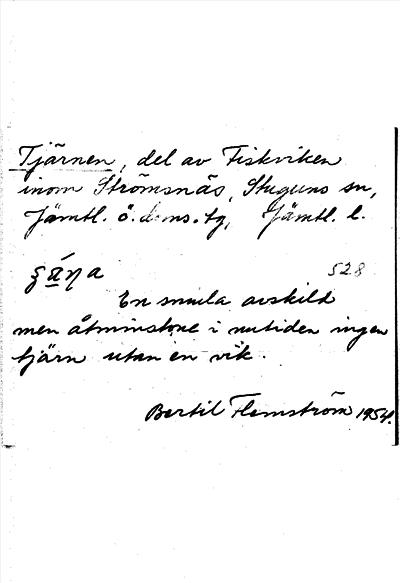 Tjärnen, del av Fiskviken
inom Strömsnäs, Stuguns sn,
Jämtl. ö. doms. tg, Jämtl. l.
528
En smula avskild
men åtminstone i nutiden ingen
tjärn utan en vik.
Bertil Flemström 1954.